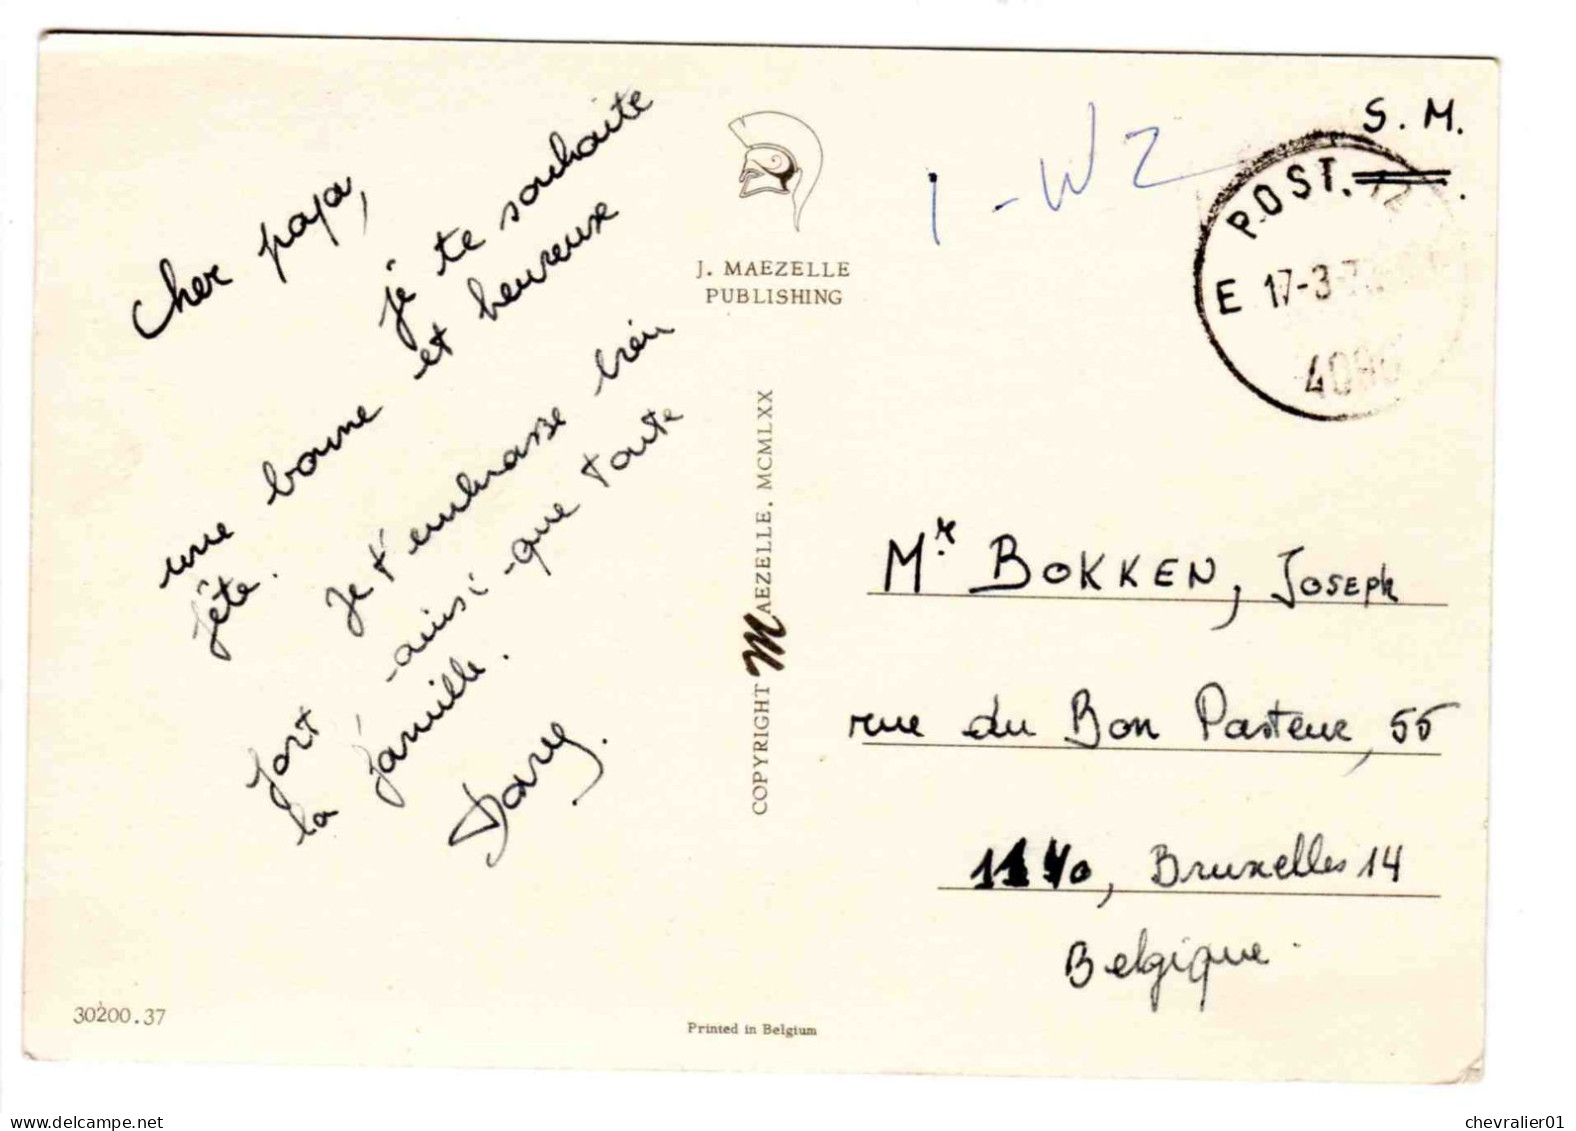 Cher papa,
je te souhaite
une bonne et heureuse
fête.
Je t'embrasse bien
fort - ainsi - que toute
la famille.
Dany.
30200.37
J. MAEZELLE
PUBLISHING
COPYRIGHT MAEZELLE, MCMLXX
Printed in Belgium
1 - W2
S. M.
POST. 12
E 17-3-
Mr BOKKEN, JOSEPH
rue du Bon Pasteur, 55
1140, Bruxelles 14
Belgique.
chevralier01